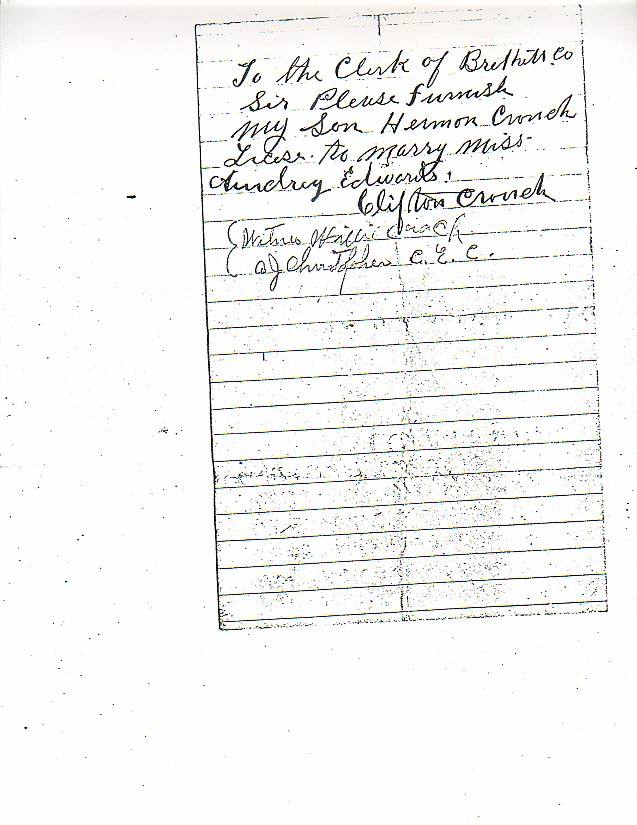 To the Clerk of Brethitt Co
Sir Please Furnish
my Son Hermon Crouch
Licese to marry Miss
Audrey Edwards.
Clifton Crouch
Witness Willie Crouch
A J Christopher C. E. C.